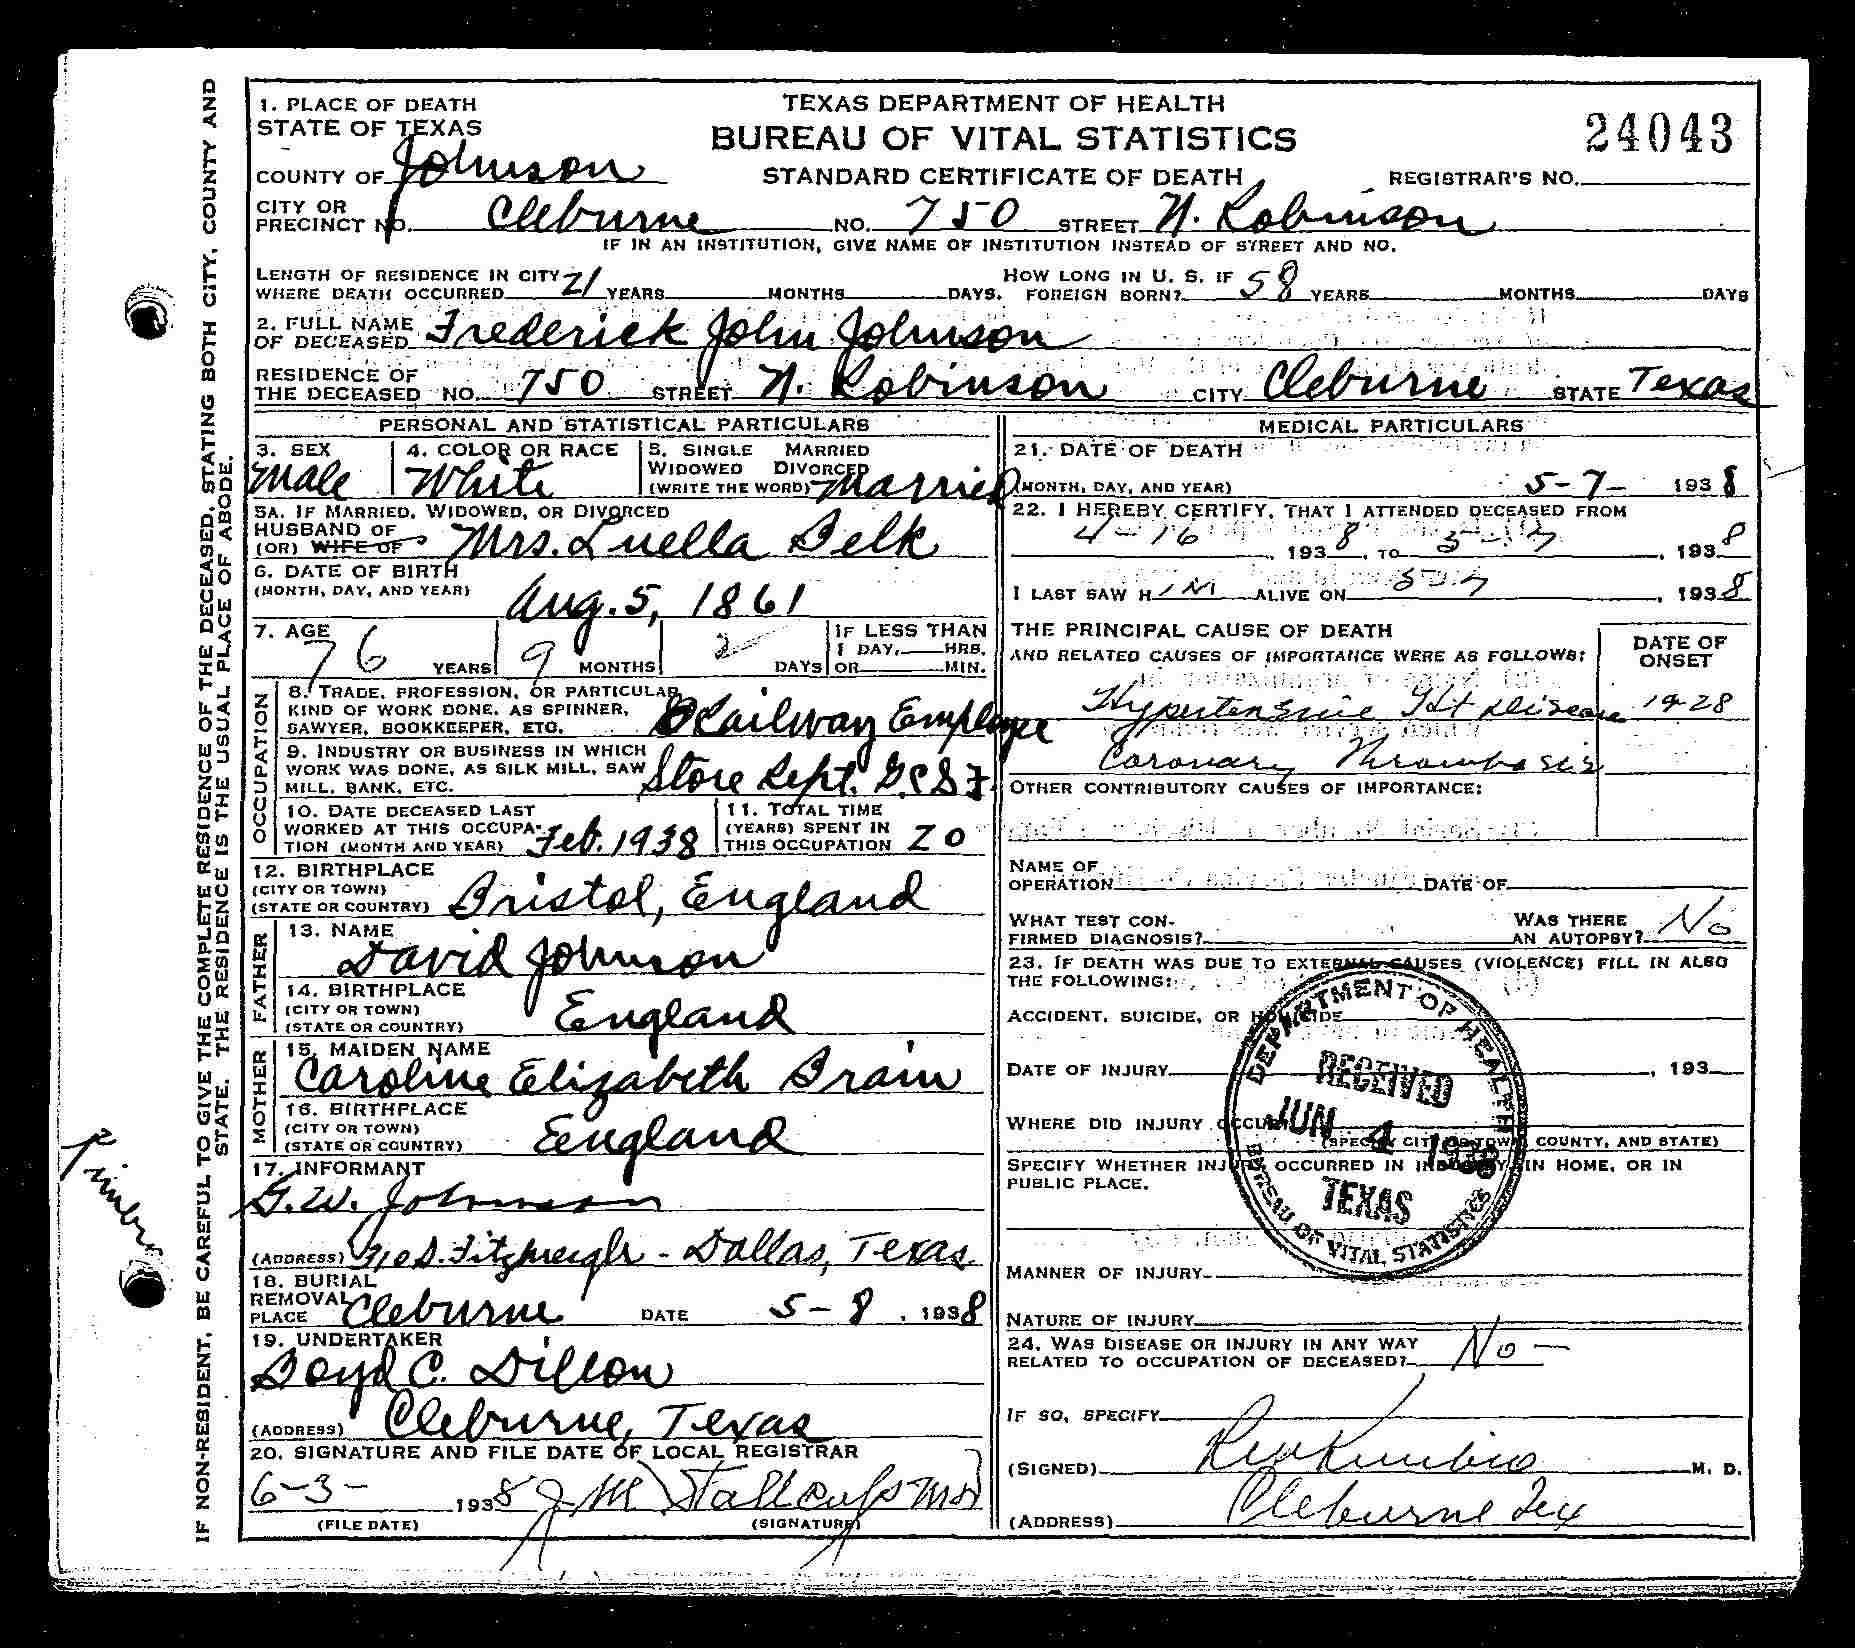 TEXAS DEPARTMENT OF HEALTH
BUREAU OF VITAL STATISTICS
STANDARD CERTIFICATE OF DEATH
24043
REGISTRAR'S NO.
1. PLACE OF DEATH
STATE OF TEXAS
COUNTY OF Johnson
CITY OR
PRECINCT NO. Cleburne NO. 750 STREET N. Robinson
IF IN AN INSTITUTION, GIVE NAME OF INSTITUTION INSTEAD OF STREET AND NO.
LENGTH OF RESIDENCE IN CITY
WHERE DEATH OCCURRED 21 YEARS MONTHS DAYS.
HOW LONG IN U. S. IF
FOREIGN BORN? 58 YEARS MONTHS DAYS
2. FULL NAME
OF DECEASED Frederick John Johnson
RESIDENCE OF
THE DECEASED NO. 750 STREET N. Robinson CITY Cleburne STATE Texas
PERSONAL AND STATISTICAL PARTICULARS
3. SEX
Male
4. COLOR OR RACE
White
5. SINGLE MARRIED
WIDOWED DIVORCED
(WRITE THE WORD) Married
5A. IF MARRIED, WIDOWED, OR DIVORCED
HUSBAND OF
(OR) WIFE OF Mrs. Luella Belk
6. DATE OF BIRTH
(MONTH, DAY, AND YEAR) Aug. 5, 1861
7. AGE
76 YEARS 9 MONTHS 2 DAYS
IF LESS THAN
1 DAY, HRS.
OR MIN.
OCCUPATION
8. TRADE, PROFESSION, OR PARTICULAR
KIND OF WORK DONE, AS SPINNER,
SAWYER, BOOKKEEPER, ETC. Railway Employee
9. INDUSTRY OR BUSINESS IN WHICH
WORK WAS DONE, AS SILK MILL, SAW
MILL, BANK, ETC. Store Dept. G.C.S.F.
10. DATE DECEASED LAST
WORKED AT THIS OCCUPA-
TION (MONTH AND YEAR) Feb. 1938
11. TOTAL TIME
(YEARS) SPENT IN
THIS OCCUPATION 20
12. BIRTHPLACE
(CITY OR TOWN)
(STATE OR COUNTRY) Bristol, England
FATHER
13. NAME
David Johnson
14. BIRTHPLACE
(CITY OR TOWN)
(STATE OR COUNTRY) England
MOTHER
15. MAIDEN NAME
Caroline Elizabeth Brain
16. BIRTHPLACE
(CITY OR TOWN)
(STATE OR COUNTRY) England
17. INFORMANT
G.W. Johnson
(ADDRESS) Dallas, Texas.
18. BURIAL
REMOVAL
PLACE Cleburne DATE 5-8, 1938
19. UNDERTAKER
Boyd C. Dillon
(ADDRESS) Cleburne, Texas
20. SIGNATURE AND FILE DATE OF LOCAL REGISTRAR
6-3- 1938 J M Stallcup MD
(FILE DATE) (SIGNATURE)
MEDICAL PARTICULARS
21. DATE OF DEATH
(MONTH, DAY, AND YEAR) 5-7- 1938
22. I HEREBY CERTIFY, THAT I ATTENDED DECEASED FROM
4-16, 1938, TO 5-7, 1938
I LAST SAW HIM ALIVE ON 5-7, 1938
THE PRINCIPAL CAUSE OF DEATH
AND RELATED CAUSES OF IMPORTANCE WERE AS FOLLOWS:
DATE OF
ONSET
Hypertensive Ht Disease
Coronary Thrombosis
OTHER CONTRIBUTORY CAUSES OF IMPORTANCE:
NAME OF
OPERATION DATE OF
WHAT TEST CON-
FIRMED DIAGNOSIS?
WAS THERE
AN AUTOPSY? No
23. IF DEATH WAS DUE TO EXTERNAL CAUSES (VIOLENCE) FILL IN ALSO
THE FOLLOWING:
ACCIDENT, SUICIDE, OR HOMICIDE
DATE OF INJURY , 193
WHERE DID INJURY OCCUR?
(SPECIFY CITY OR TOWN, COUNTY, AND STATE)
SPECIFY WHETHER INJURY OCCURRED IN INDUSTRY, IN HOME, OR IN
PUBLIC PLACE.
MANNER OF INJURY
NATURE OF INJURY
24. WAS DISEASE OR INJURY IN ANY WAY
RELATED TO OCCUPATION OF DECEASED? No -
IF SO, SPECIFY
(SIGNED) M. D.
(ADDRESS) Cleburne Tex
DEPARTMENT OF HEALTH
RECEIVED
JUN 4 1938
TEXAS
BUREAU OF VITAL STATISTICS
IF NON-RESIDENT, BE CAREFUL TO GIVE THE COMPLETE RESIDENCE OF THE DECEASED, STATING BOTH CITY, COUNTY AND
STATE. THE RESIDENCE IS THE USUAL PLACE OF ABODE.